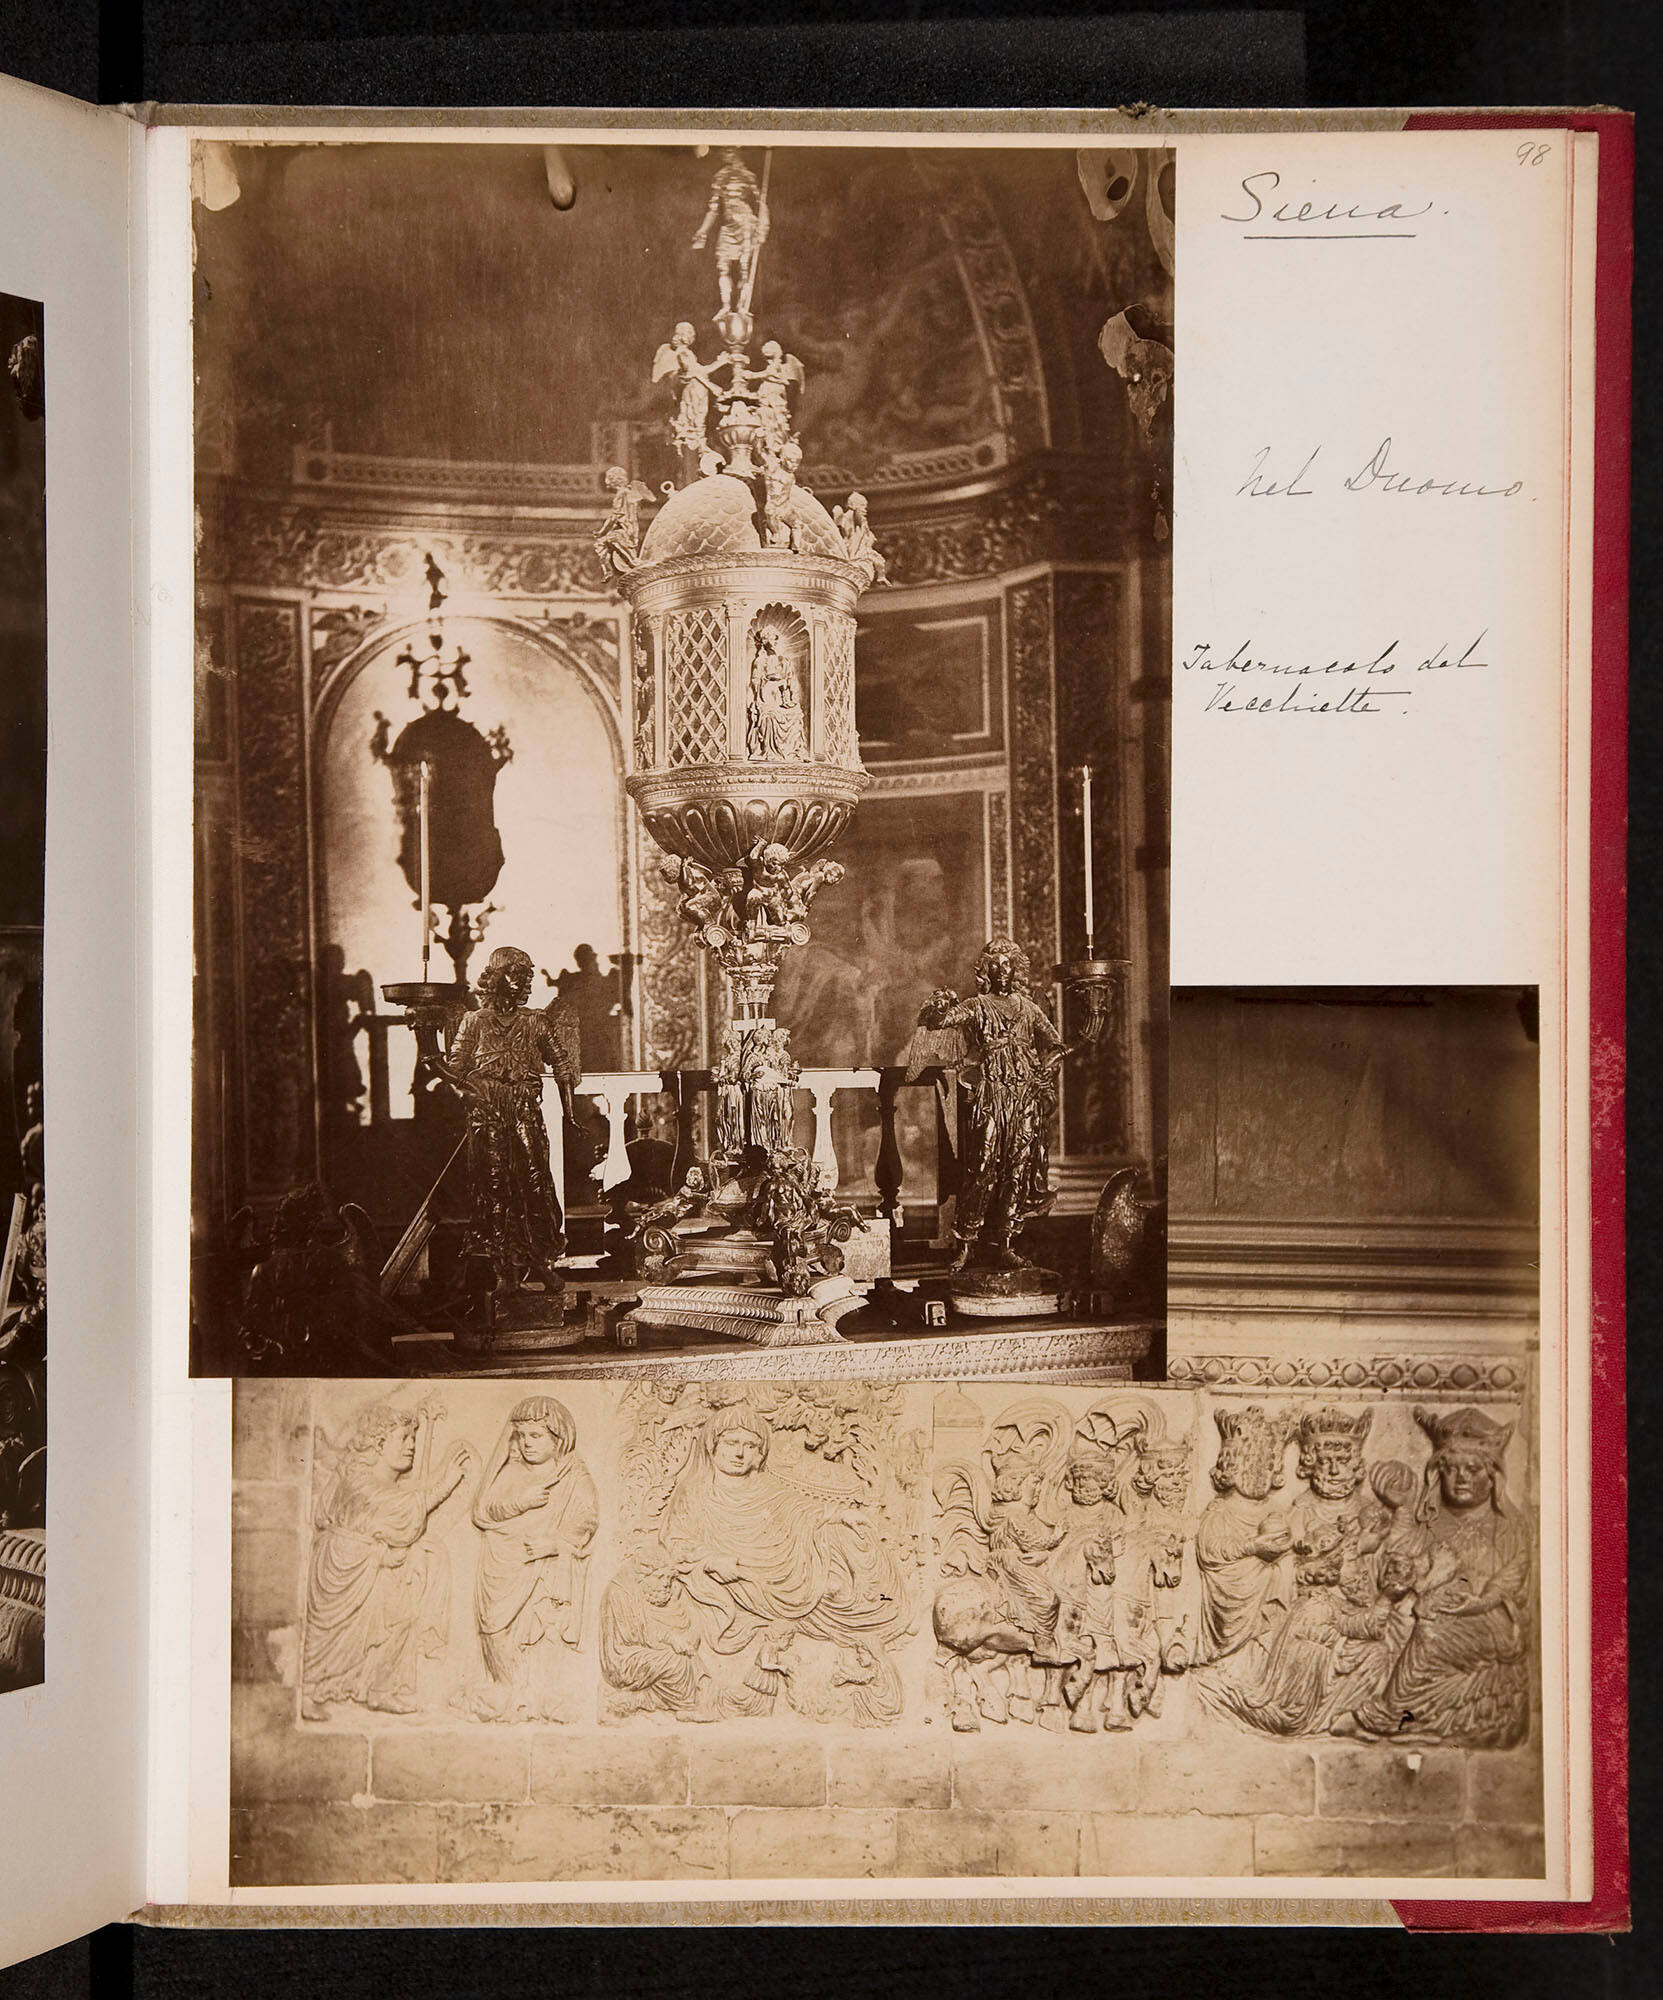 98
Siena.
Nel Duomo.
Tabernacolo del
Vecchietta.